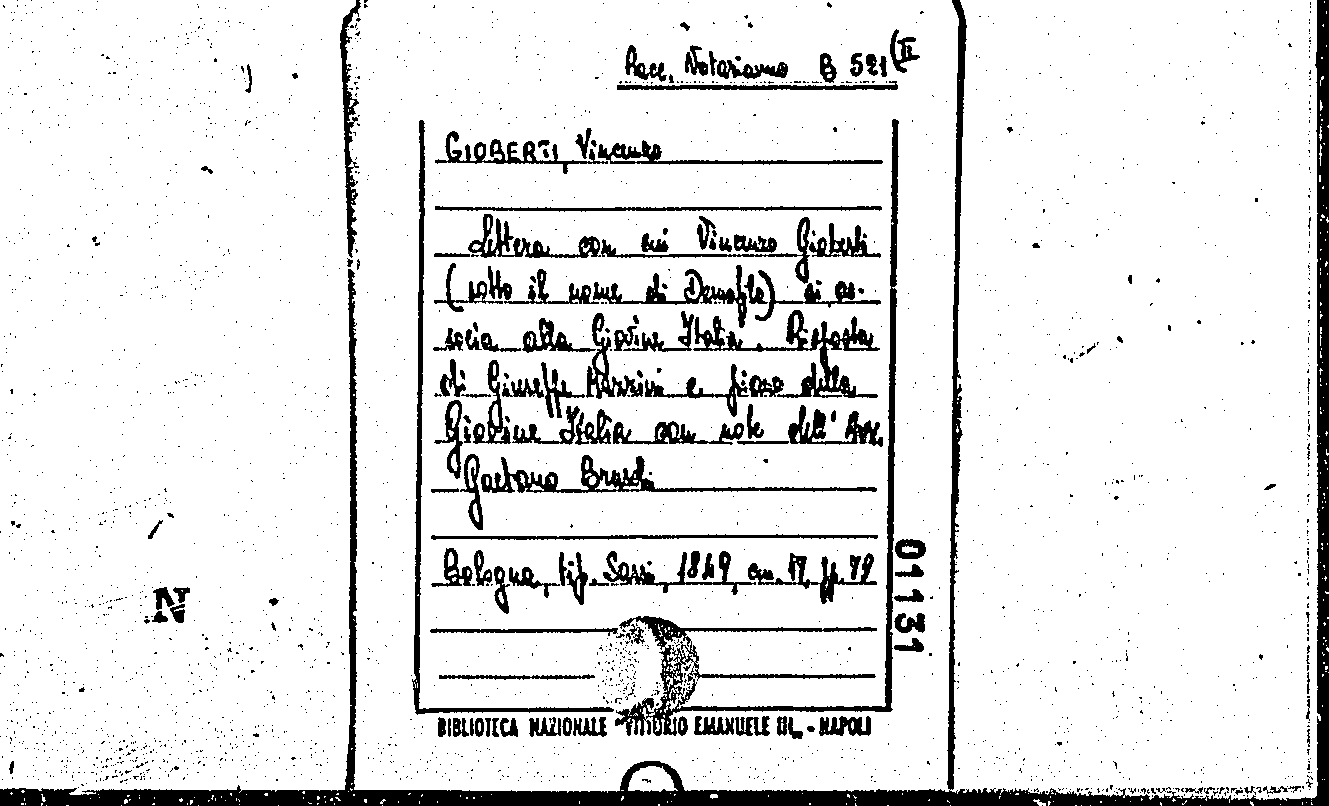 Racc. Notarianno B 521 (II
GIOBERTI, Vincenzo
Lettera con cui Vincenzo Gioberti
(sotto il nome di Demofilo) si as-
socia alla Giovine Italia. Risposta
di Giuseppe Mazzini e piano della
Giovine Italia con note dell' Avv.
Gaetano
Bologna, tip. Sassi, 1849, cm. 17, pp. 79
01131
N
BIBLIOTECA NAZIONALE "VITTORIO EMANUELE III„ - NAPOLI